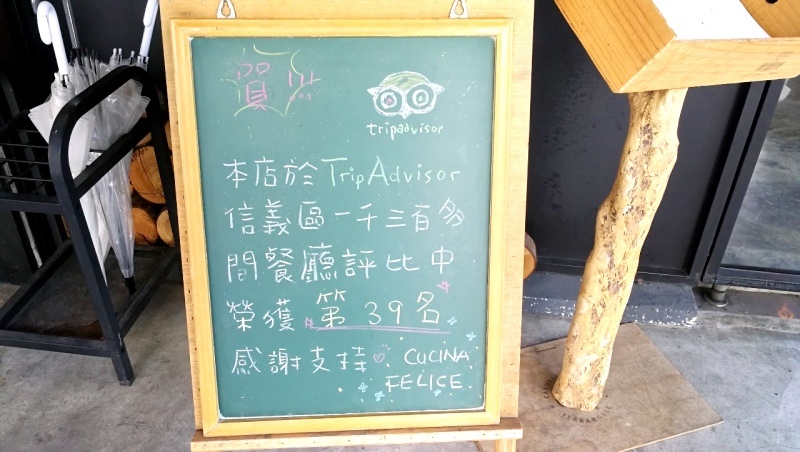 賀!!!
tripadvisor
本店於TripAdvisor
信義區一千三百多
間餐廳評比中
榮獲第39名
感謝支持♡ CUCINA
FELICE